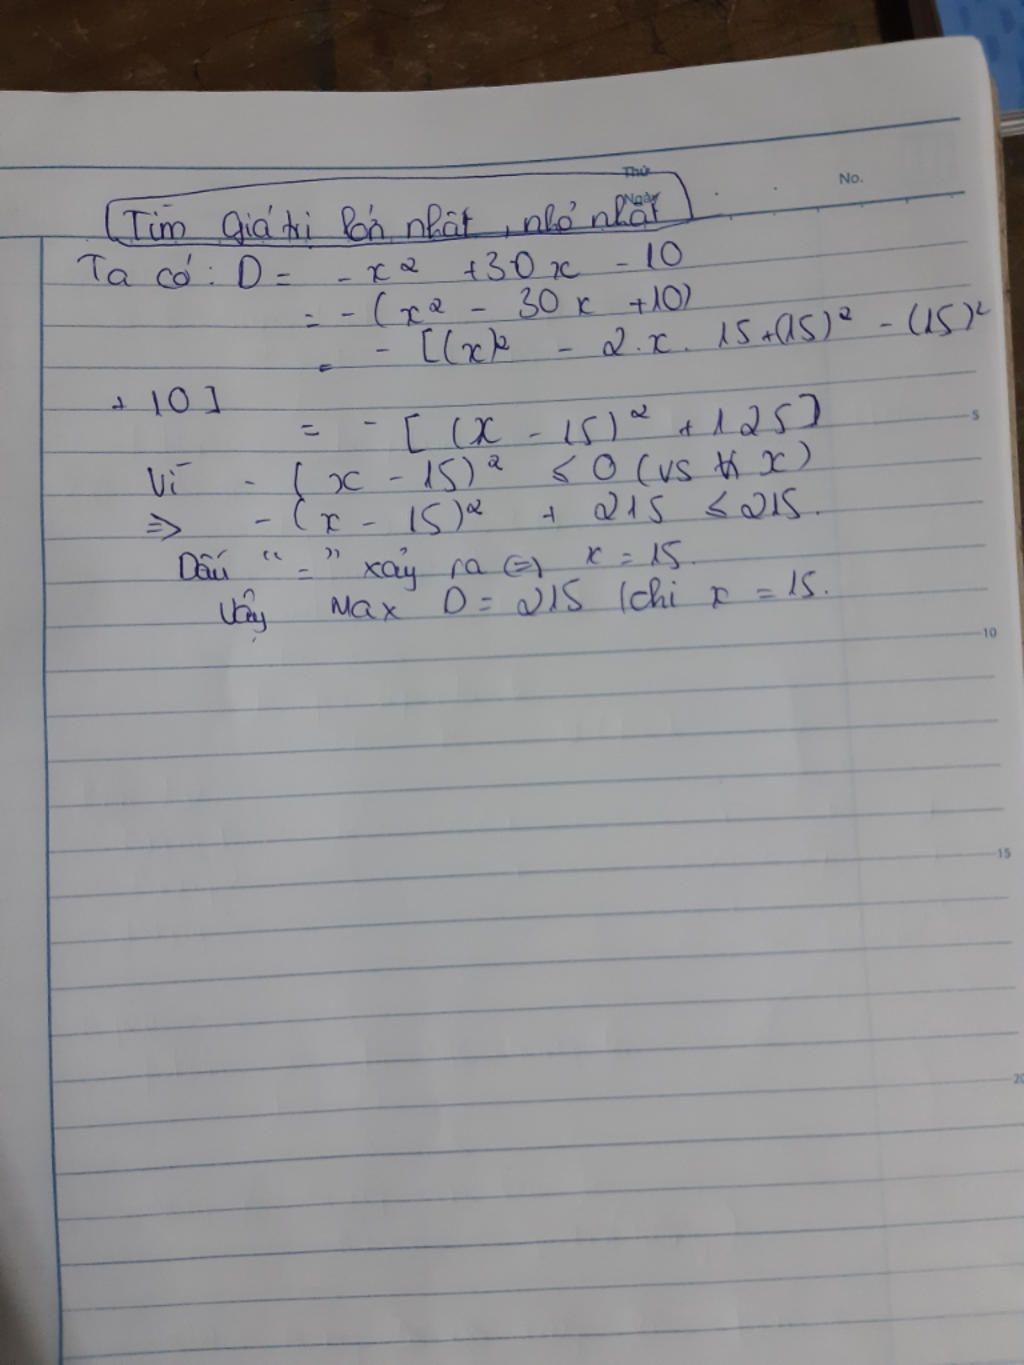 Thứ
Ngày
No.
Tìm giá trị lớn nhất, nhỏ nhất
Ta có: D = -x² + 30x - 10
= -(x² - 30x + 10)
= -[(x)² - 2.x.15 + (15)² - (15)²
+ 10]
= -[(x - 15)² + 125]
Vì -(x - 15)² ≤ 0 (vs ∀ x)
=> -(x - 15)² + 215 ≤ 215.
Dấu "=" xảy ra <=> x = 15.
Vậy Max D = 215 khi x = 15.
5
10
15
20